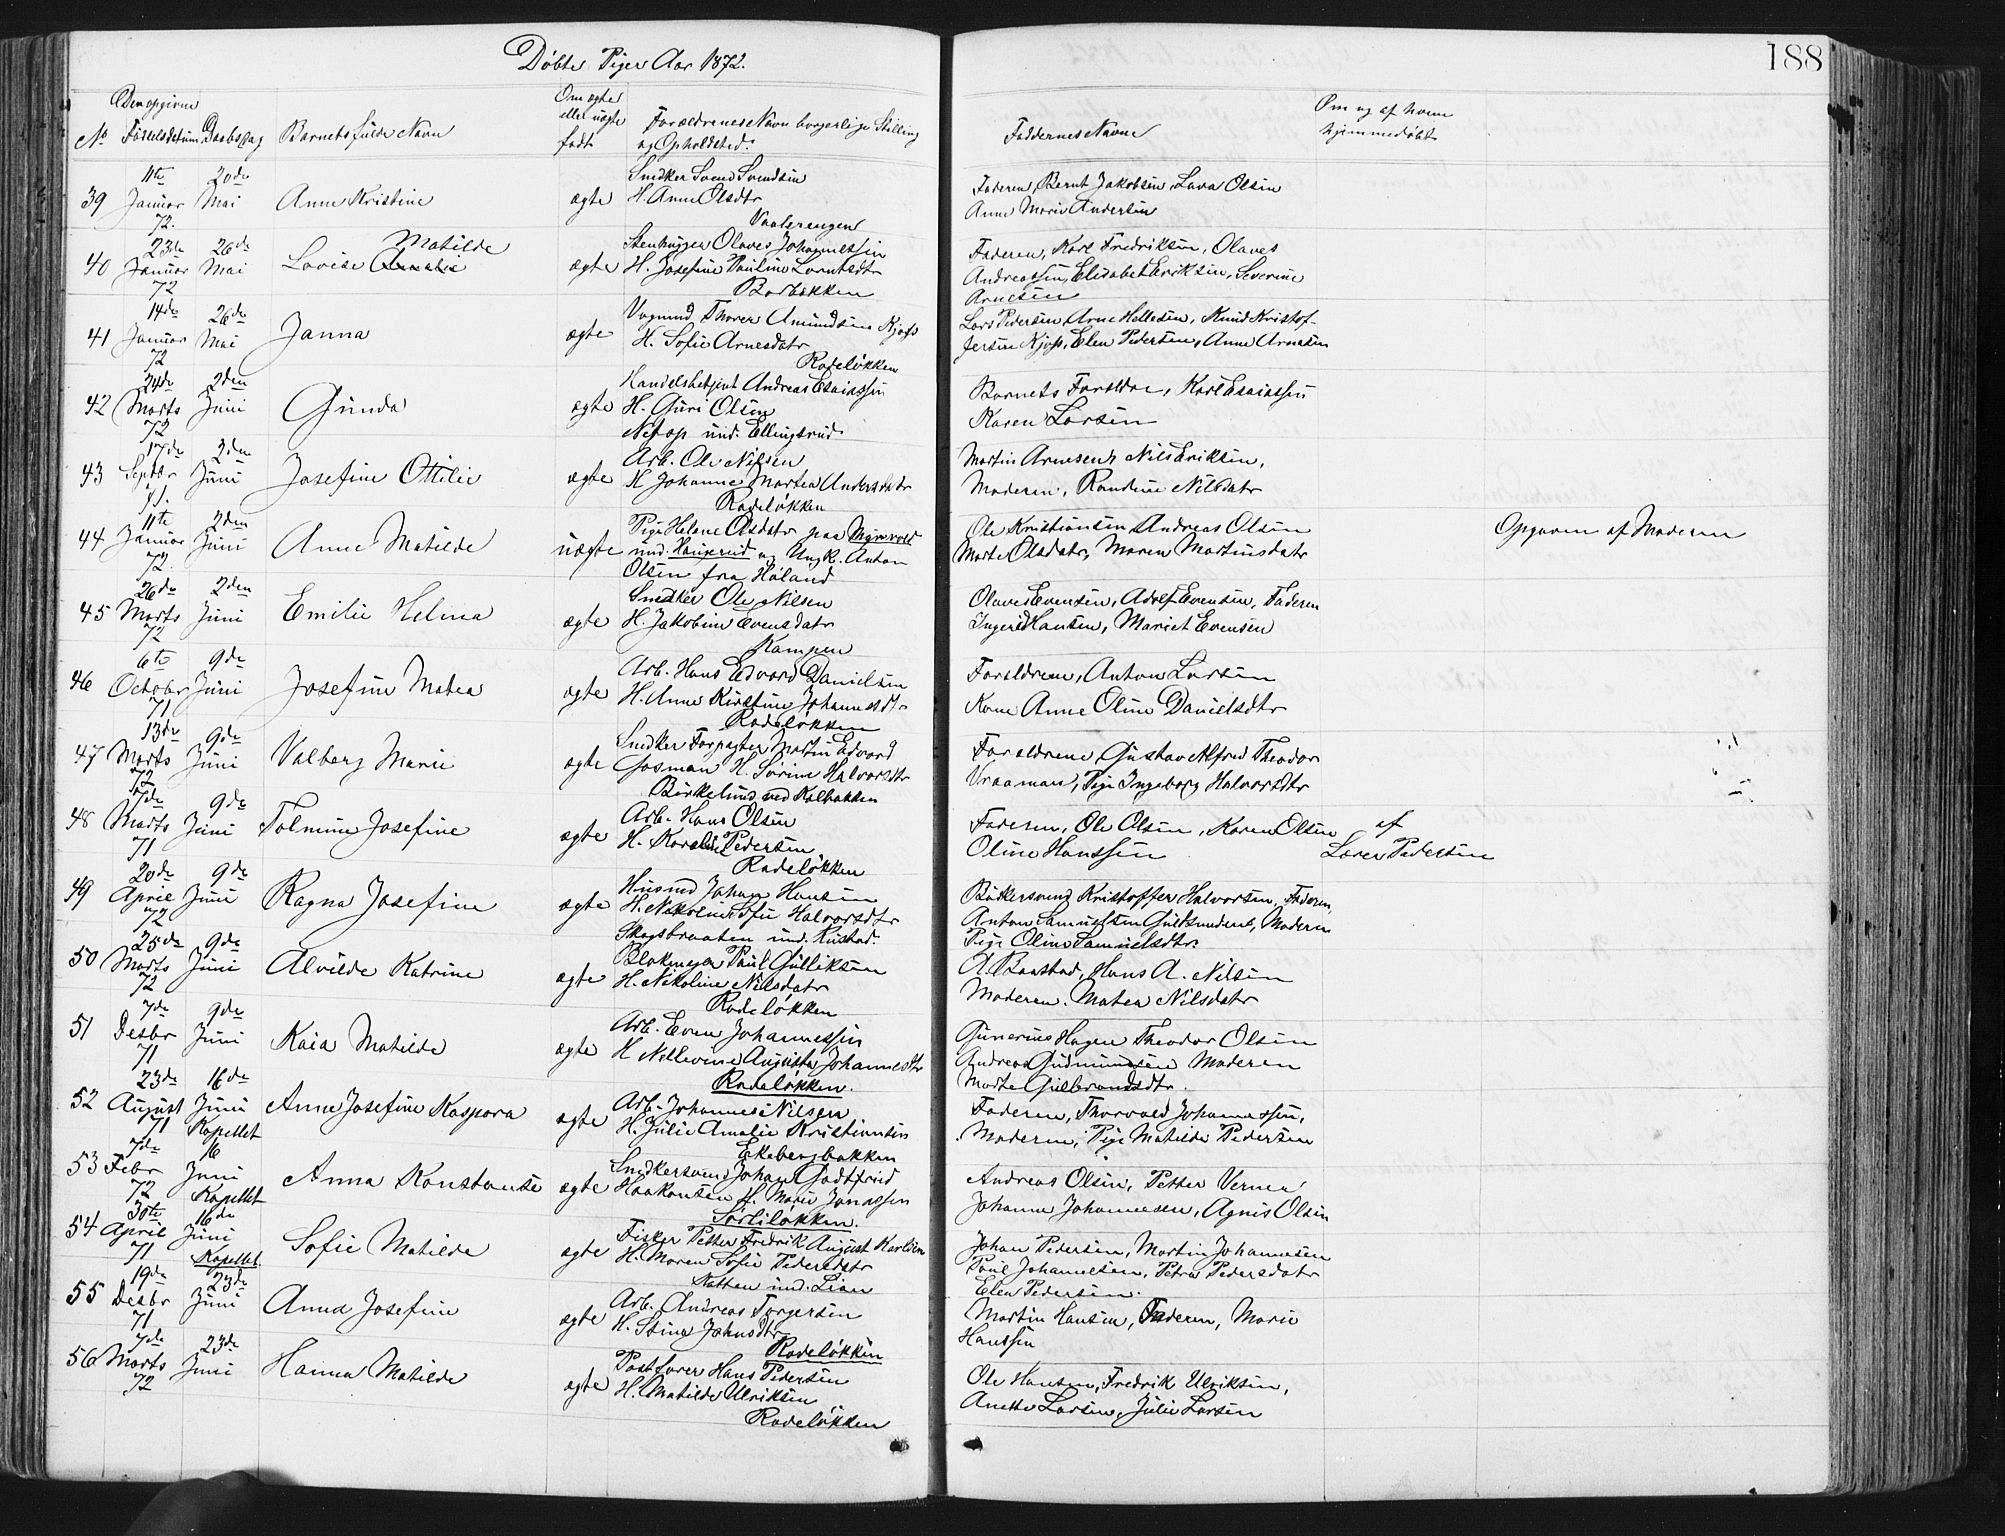 Døbte Piger Aar 1872.
188
No
Den opgivne Fødselsdatum
Daabsdag
Barnets fulde Navn
Om ægte eller uægte født
Forældrenes Navn borgerlige Stilling og Opholdsted.
Faddernes Navne
Om og af hvem hjemmedøbt
39 11te Januar 72. 20de Mai Anne Kristine ægte
Snedker Svend Svendsen
H. Anne Olsdtr
Vaalerengen
Faderen, Bernt Jakobsen, Lava Olsen
Anne Marie Andersen
40 23de Januar 72 26de Mai Lovise Amalie Matilde ægte
Stenhugger Olaves Johannessen
H. Josefine Pauline Lorntsdtr
Borbakken
Faderen, Karl Fredriksen, Olaves
Andreassen, Elisabet Eriksen, Severine
Arnesen
41 14de Januar 72 26de Mai Janna ægte
Vognmd Thorer Amundsen Kjøss
H. Sofie Arnesdatr
Rodeløkken
Lars Pedersen, Arne Hellesen, Knud Kristof-
fersen Kjøss, Elen Pedersen, Anne Arnesen
42 24de Marts 72 2den Juni Gunda ægte
Handelsbetjent Andreas Esaiassen
H. Guri Olsen
Nesop und. Ellingsrud
Barnets Forældre, Karl Esaiassen
Karen Larsen
43 17de Septbr 71. 2den Juni Josefine Ottilie ægte
Arb. Ole Nilsen
H Johanne Martea Andersdatr
Rodeløkken
Martin Arnesen, Nils Eriksen,
Moderen, Randine Nilsdatr
44 11te Januar 72. 2den Juni Anne Matilde uægte
Pige Helene Olsdatr paa Myrvold
und. Haugerud og Ungk. Anton
Olsen fra Høland
Ole Kristiansen, Andreas Olsen
Marte Olsdatr, Maren Martinsdatr
Opgaven af Moderen
45 26de Marts 72 2den Juni Emilie Helina ægte
Snedker Ole Nilsen
H. Jakobine Evensdatr
Kampen
Olaves Evensen, Adolf Evensen, Faderen
Ingerid Hansen, Mariet Evensen
46 6te October 71 9de Juni Josefine Matea ægte
Arb. Hans Edvard Danielsen
H. Anne Kirstine Johannesdtr
Rodeløkken
Forældrene, Anton Larsen
Kone Anne Oline Danielsdtr
47 13de Marts 72 9de Juni Valborg Marie ægte
Snedker Forpagter Martin Edvard
Gosman H. Sørine Halvorsdtr
Birkelund ved Kalbakken
Forældrene, Gustav Alfred Theodor
Vraaman, Pige Ingeborg Halvorsdtr
48 7de Marts 71 9de Juni Tolmine Josefine ægte
Arb. Hans Olsen
H. Karoline Pedersen
Rodeløkken
Faderen, Ole Olsen, Karen Olsen
Oline Hanssen
af
Lærer Pedersen
49 20de April 72 9de Juni Ragna Josefine ægte
Husmd Johan Hansen
H. Nikoline Sofie Halvorsdtr
Skogsbraaten und. Rustad.
Bødkersvend Kristoffer Halvorsen, Faderen,
Anton Samuelsen Guldsmedsvend, Moderen
Pige Oline Samuelsdtr.
50 25de Marts 72 9de Juni Alvilde Katrine ægte
Blokmager Paul Gulliksen
H. Nikoline Nilsdatr
Rodeløkken
A. Baastad, Hans A. Nilsen
Moderen. Matea Nilsdatr
51 7de Desbr 71 9de Juni Kaia Matilde ægte
Arb. Even Johannessen
H Nellevine Augusta Johannesdtr
Rodeløkken.
Gunerius Hagen Theodor Olsen
Andreas Gudmundsen Moderen
Marte Gulbrandsdtr.
52 23de August 71 16de Juni Kapellet Anne Josefine Kaspara ægte
Arb. Johannes Nilsen
H. Julie Amalie Kristiansen
Ekebergbakken
Faderen, Thorvald Johannessen,
Moderen, Pige Matilde Pedersen
53 7de Febr 72 16 Juni Kapellet Anna Konstanse ægte
Snedkersvend Johan Godtfred
Haakonsen H. Marie Jonassen
Sørliløkken.
Andreas Olsen, Petter Verner
Johanne Johannesen, Agnis Olsen
54 30te April 71 16de Juni Kapellet. Sofie Matilde ægte
Fisker Petter Fredrik August Karlsen
H. Maren Sofie Pedersdatr
Natten und. Lian
Johan Pedersen, Martin Johannesen
Paul Johannesen, Petra Pedersdatr
Elen Pedersen.
55 19de Desbr 71 23de Juni Anna Josefine ægte
Arb. Andreas Torgersen
H. Stina Johnsdtr
Rodeløkken
Martin Hansen, Faderen, Marie
Hanssen
56 7de Marts 72 23de Juni Hanna Matilde ægte
Postfører Hans Pedersen
H. Matilde Ulriksen
Rodeløkken
Ole Hansen, Fredrik Ulriksen,
Anette Larsen, Julie Larsen